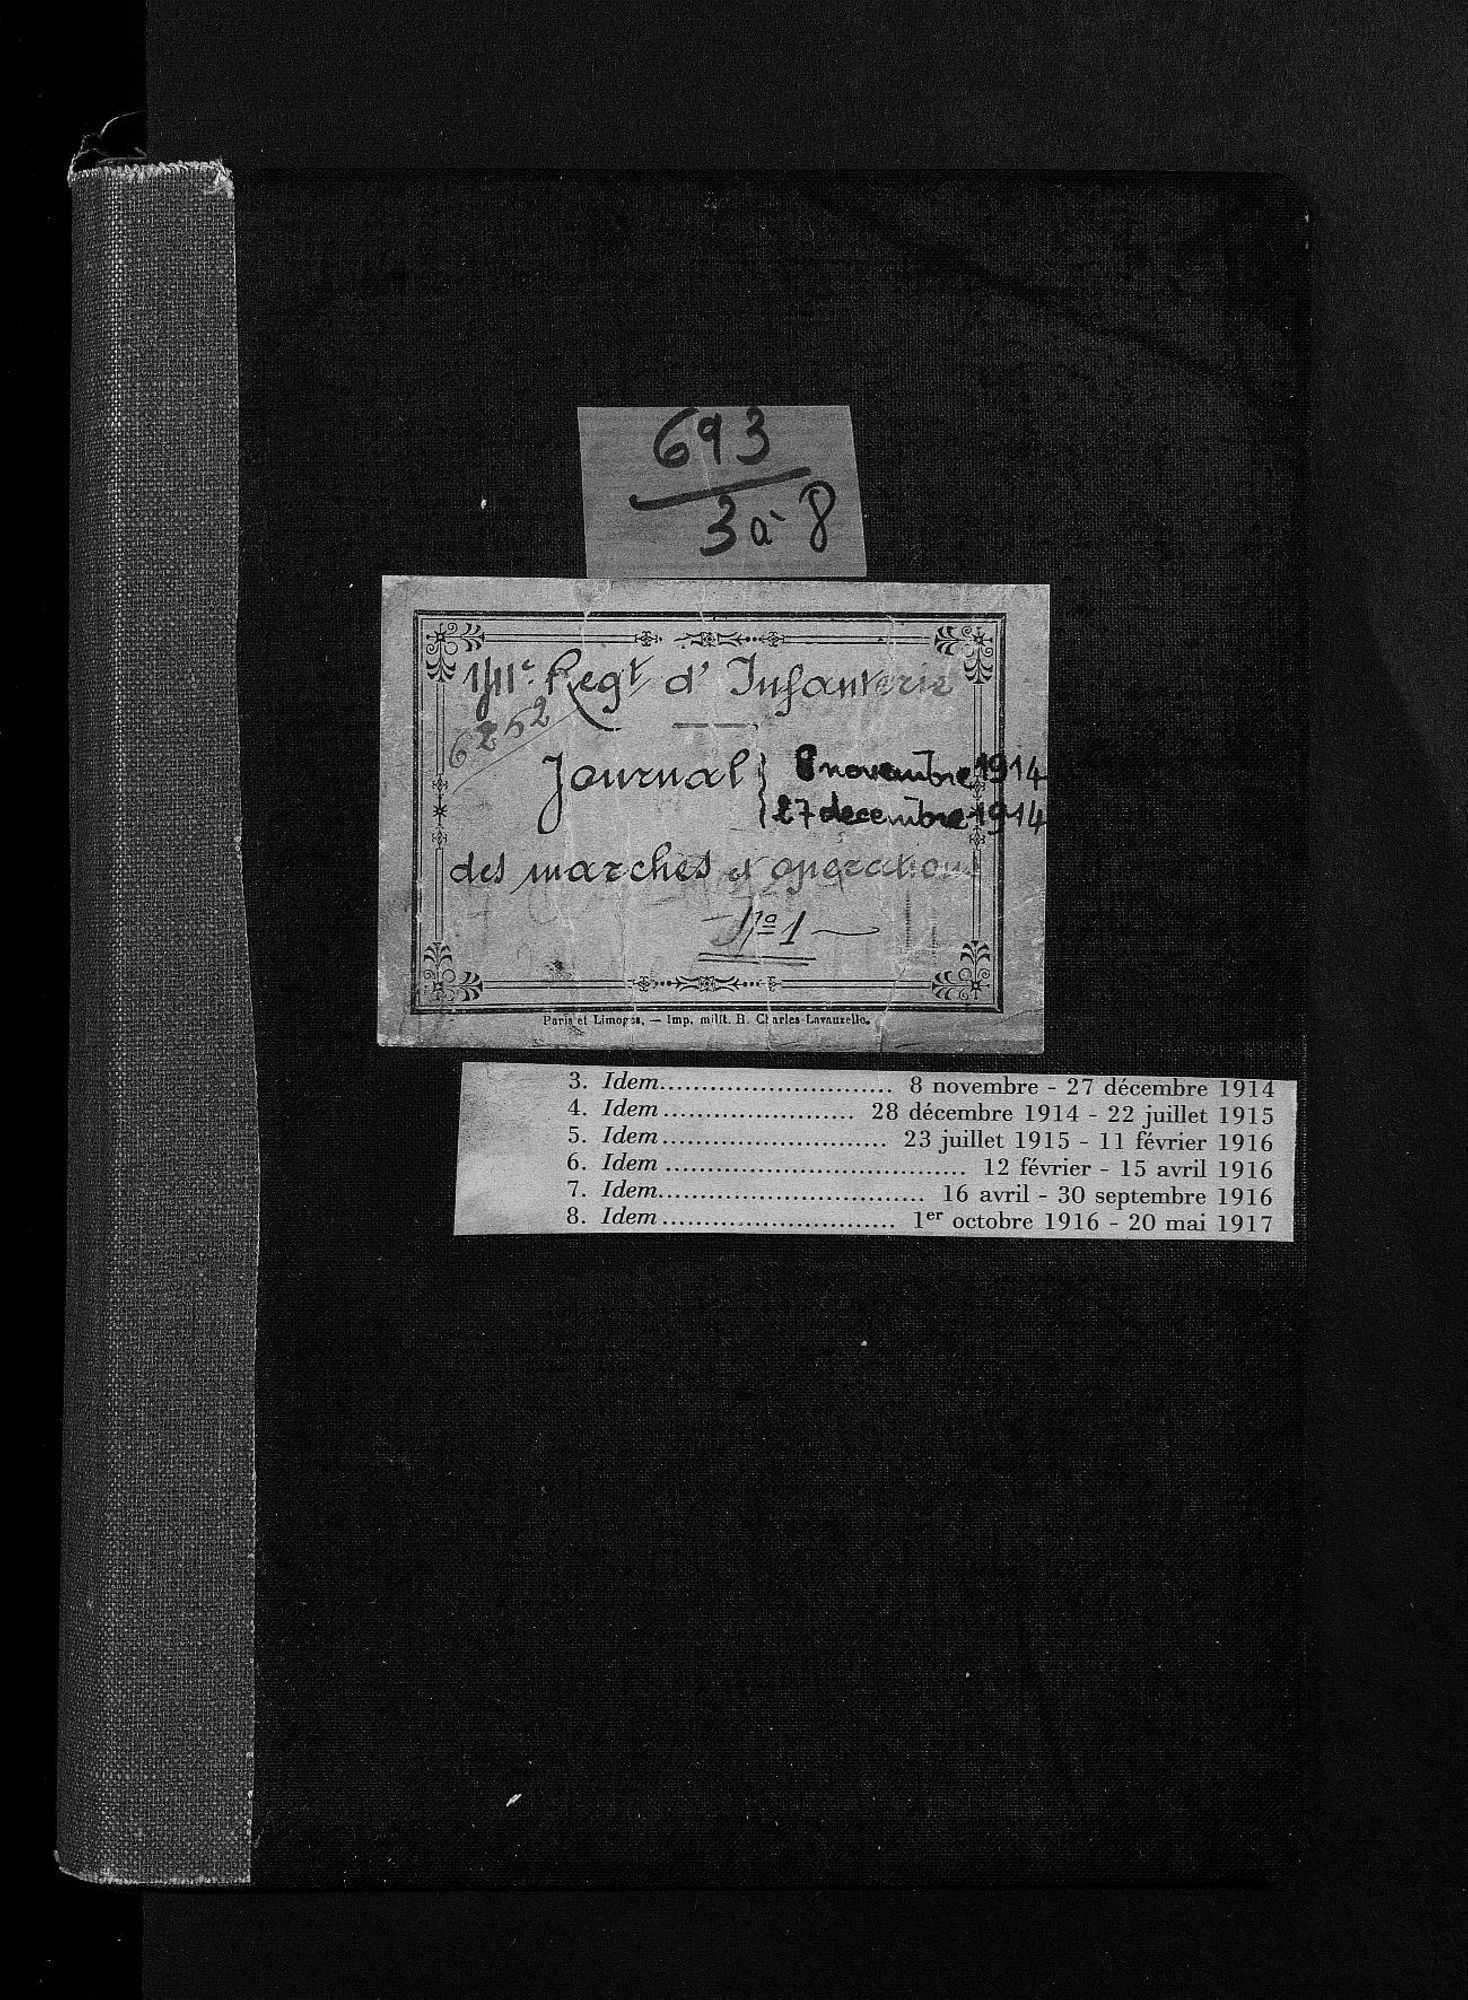 693
3 à 8
Regt d' Infanterie
6252
Journal
8 novembre 1914
27 decembre 1914
des marches et operations
No 1
Paris et Limoges. — Imp. milit. H. Charles-Lavauzelle.
3. Idem............................ 8 novembre - 27 décembre 1914
4. Idem....................... 28 décembre 1914 - 22 juillet 1915
5. Idem........................... 23 juillet 1915 - 11 février 1916
6. Idem.................................... 12 février - 15 avril 1916
7. Idem................................ 16 avril - 30 septembre 1916
8. Idem............................ 1er octobre 1916 - 20 mai 1917